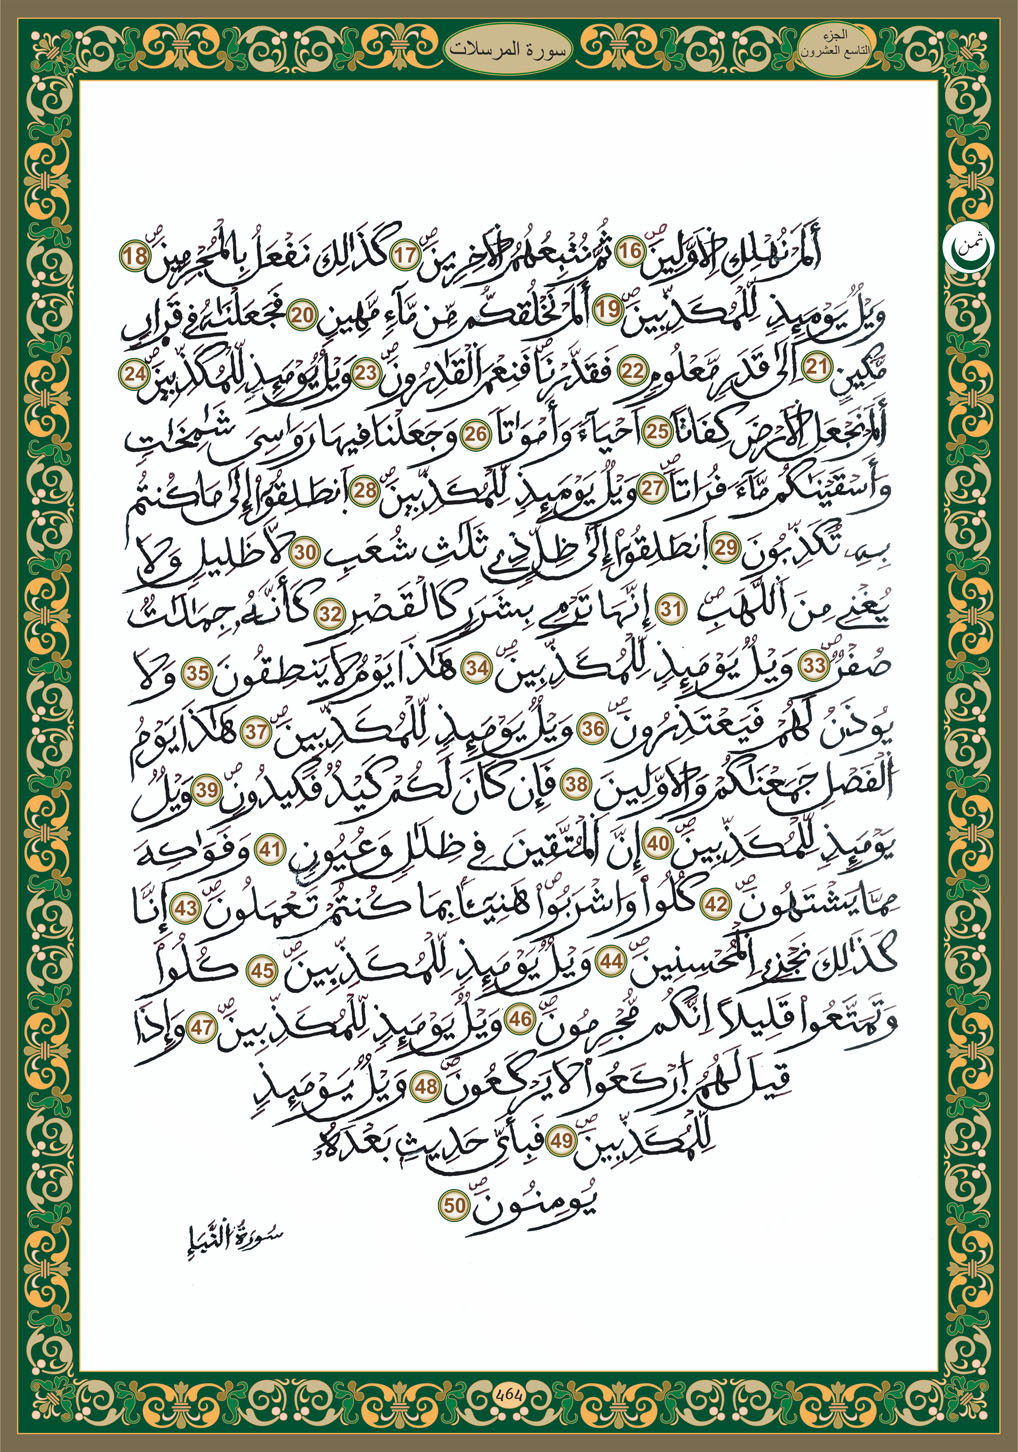 سورة المرسلات
الجزء
التاسع العشرون
ثمن
أَلَمْ نُهْلِكِ الْأَوَّلِينَ ص 16 ثُمَّ نُتْبِعُهُمُ الْأَخِرِينَ ص 17 كَذَٰلِكَ نَفْعَلُ بِالْمُجْرِمِينَ ص 18
وَيْلٌ يَوْمَئِذٍ لِّلْمُكَذِّبِينَ ص 19 أَلَمْ نَخْلُقكُّم مِّن مَّآءٍ مَّهِينٍ 20 فَجَعَلْنَٰهُ فِي قَرَارٍ
مَّكِينٍ 21 اِلَىٰ قَدَرٍ مَّعْلُومٍ 22 فَقَدَّرْنَا ص فَنِعْمَ الْقَٰدِرُونَ ص 23 وَيْلٌ يَوْمَئِذٍ لِّلْمُكَذِّبِينَ ص 24
أَلَمْ نَجْعَلِ الْأَرْضَ كِفَاتاً 25 اَحْيَآءً وَأَمْوَٰتاً 26 وَجَعَلْنَا فِيهَا رَوَٰسِيَ شَٰمِخَٰتٍ
وَأَسْقَيْنَٰكُم مَّآءً فُرَاتاً ص 27 وَيْلٌ يَوْمَئِذٍ لِّلْمُكَذِّبِينَ ص 28 اَنطَلِقُوٓاْ إِلَىٰ مَا كُنتُم
بِهِۦ تُكَذِّبُونَ ص 29 اَنطَلِقُوٓاْ إِلَىٰ ظِلٍّ ذِي ثَلَٰثِ شُعَبٍ 30 لَّا ظَلِيلٍ وَلَا
يُغْنِي مِنَ اَللَّهَبِ ص 31 إِنَّهَا تَرْمِي بِشَرَرٍ كَالْقَصْرِ 32 كَأَنَّهُۥ جِمَٰلَٰتٌ
صُفْرٌ ص 33 وَيْلٌ يَوْمَئِذٍ لِّلْمُكَذِّبِينَ ص 34 هَٰذَا يَوْمُ لَا يَنطِقُونَ 35 وَلَا
يُوذَنُ لَهُمْ فَيَعْتَذِرُونَ ص 36 وَيْلٌ يَوْمَئِذٍ لِّلْمُكَذِّبِينَ ص 37 هَٰذَا يَوْمُ
اَلْفَصْلِ جَمَعْنَٰكُمْ وَالْأَوَّلِينَ 38 فَإِن كَانَ لَكُمْ كَيْدٌ فَكِيدُونِ ص 39 وَيْلٌ
يَوْمَئِذٍ لِّلْمُكَذِّبِينَ ص 40 إِنَّ اَلْمُتَّقِينَ فِي ظِلَٰلٍ وَعُيُونٍ 41 وَفَوَٰكِهَ
مِمَّا يَشْتَهُونَ ص 42 كُلُواْ وَاشْرَبُواْ هَنِيٓـًٔا بِمَا كُنتُمْ تَعْمَلُونَ ص 43 إِنَّا
كَذَٰلِكَ نَجْزِي اِلْمُحْسِنِينَ ص 44 وَيْلٌ يَوْمَئِذٍ لِّلْمُكَذِّبِينَ ص 45 كُلُواْ
وَتَمَتَّعُواْ قَلِيلاً اِنَّكُم مُّجْرِمُونَ ص 46 وَيْلٌ يَوْمَئِذٍ لِّلْمُكَذِّبِينَ ص 47 وَإِذَا
قِيلَ لَهُمُ اُرْكَعُواْ لَا يَرْكَعُونَ ص 48 وَيْلٌ يَوْمَئِذٍ
لِّلْمُكَذِّبِينَ ص 49 فَبِأَيِّ حَدِيثٍ بَعْدَهُۥ
يُومِنُونَ ص 50
سُورَةُ اَلنَّبَإِ
464